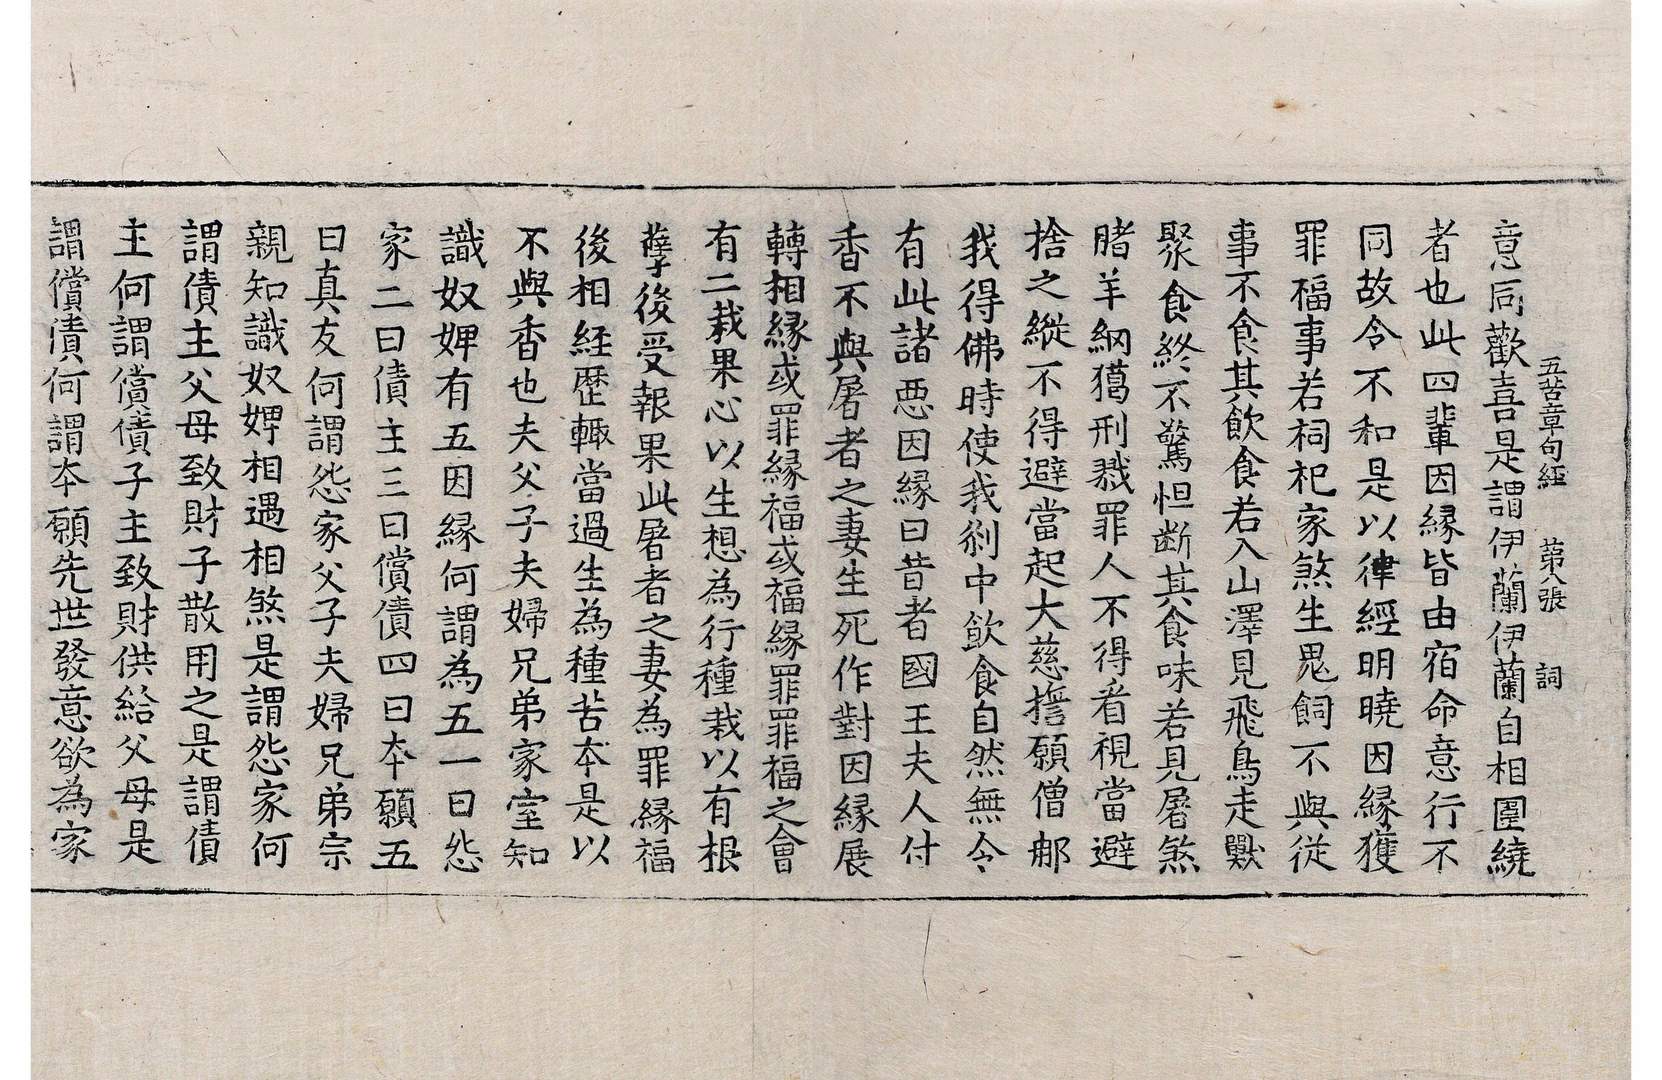 五苦章句經　第八張　詞
意同歡喜是謂伊蘭伊蘭自相圍繞
者也此四輩因緣皆由宿命意行不
同故令不和是以律經明曉因緣獲
罪福事若祠祀家煞生鬼飼不與從
事不食其飲食若入山澤見飛鳥走獸
聚食終不驚怛断其食味若見屠煞
賭羊網獦刑戮罪人不得看視當避
捨之縱不得避當起大慈誓願僧那
我得佛時使我剎中飲食自然無令
有此諸惡因緣曰昔者國王夫人付
香不與屠者之妻生死作對因緣展
轉相緣或罪緣福或福緣罪罪福之會
有二栽果心以生想為行種栽以有根
孽後受報果此屠者之妻為罪緣福
後相経歷輙當過生為種苦本是以
不與香也夫父子夫婦兄弟家室知
識奴婢有五因緣何謂為五一曰怨
家二曰債主三曰償債四曰本願五
曰真友何謂怨家父子夫婦兄弟宗
親知識奴婢相遇相煞是謂怨家何
謂債主父母致財子散用之是謂債
主何謂償債子主致財供給父母是
謂償債何謂本願先世發意欲為家